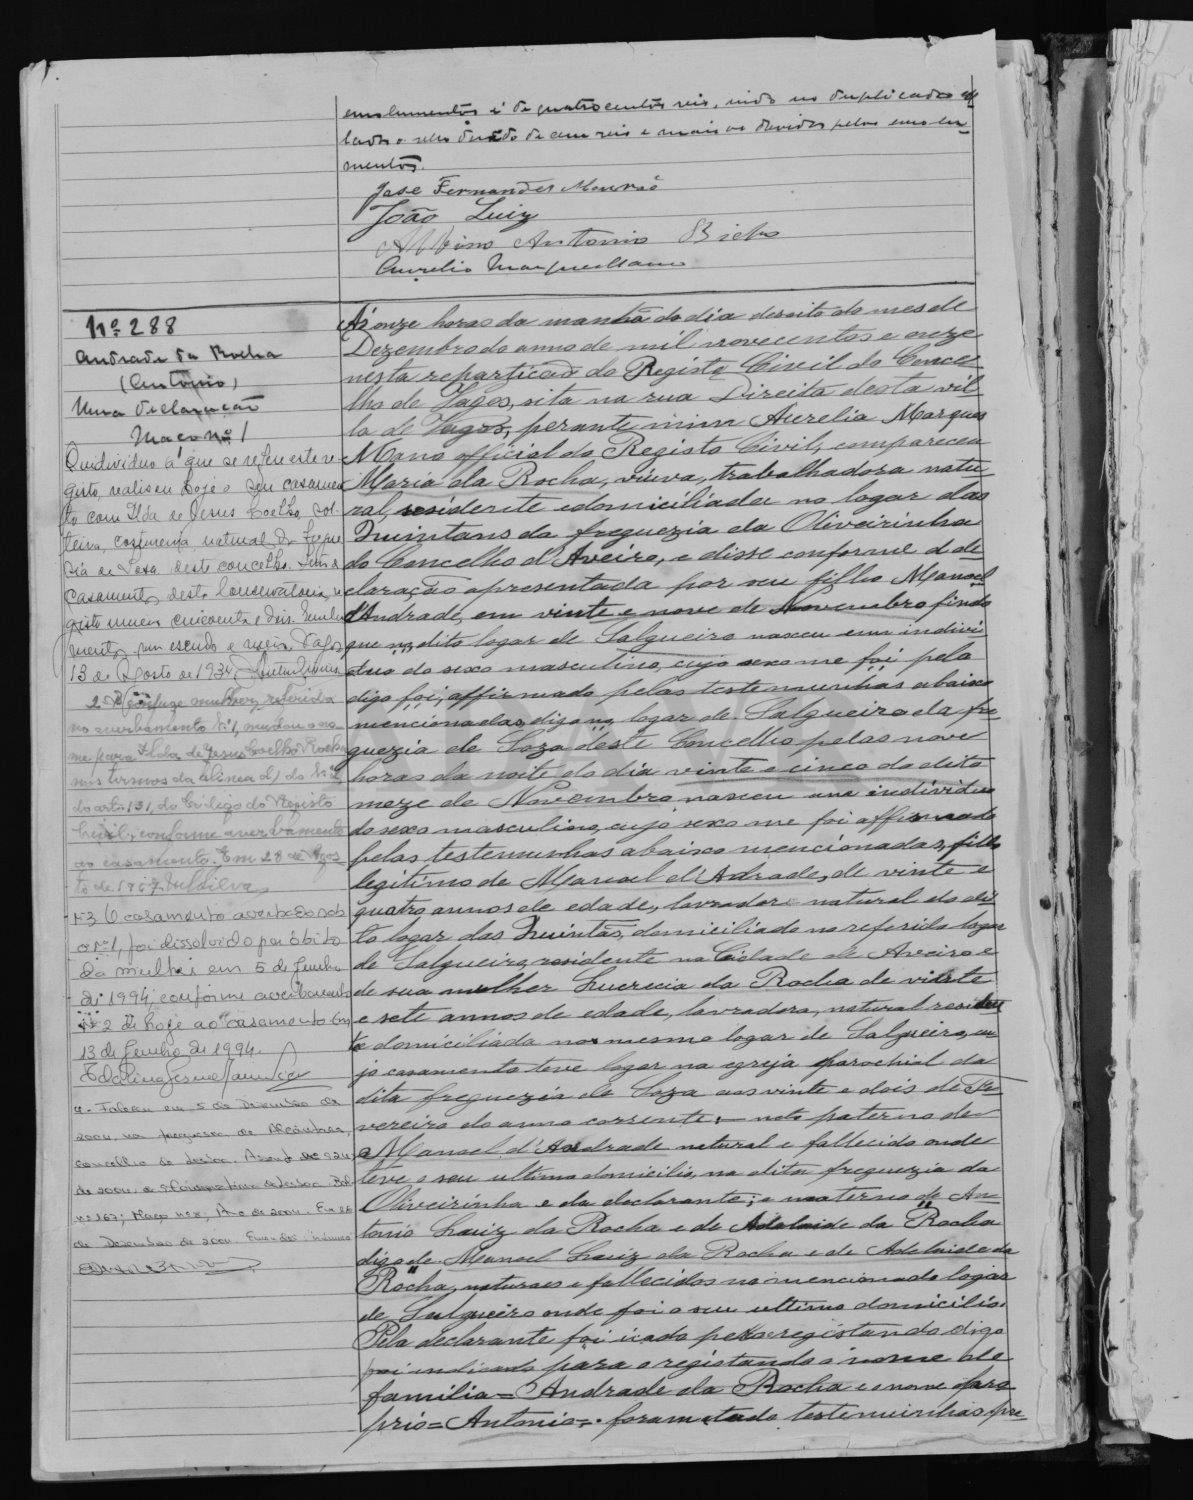 emolumentos é de quatrocentos reis, indo no duplicado
lado o selo devido de cem reis e mais os devidos pelos emolu-
mentos.
José Fernandes Mourão
João Luiz
Albino Antonio Bicho
Aurelio Marques Mano
Nº 288
Andrade da Rocha
(Antonio)
Uma declaração
Maço nº 1
O individuo a que se refere este re-
gisto, realisou hoje o seu casamen
to com Ilda de Jesus Coelho, sol-
teira, costureira, natural da fregue
sia de Soza deste concelho.
casamento desta Conservatoria,
gisto numero cincoenta e dois. Emolu
mentos, um escudo e meio. Vagos
13 de Agosto de 1934.
2 O conjuge mulher, referida
no averbamento nº 1, mudou o no-
me para Ilda de Jesus Coelho Rocha
nos termos da alinea d) do nº
do artº 131, do Código do Registo
Civil, conforme averbamento
ao casamento. Em 28 de Agos-
to de 1967. Silva
Nº 3 O casamento averbado sob
o nº 1, foi dissolvido por óbito
da mulher em 5 de Junho
de 1994, conforme averbamento
nº 2 de hoje ao casamento. Em
13 de Junho de 1994.
4 - Faleceu em 5 de Dezembro de
2004 na freguesia de Alcântara,
concelho de Lisboa. Assento nº 924
de 2004, da Conservatória de Lisboa. Bol.
nº 167; Maço nº 8, Ano de 2004. Em 26
de Dezembro de 2004.
Ás onze horas da manhã do dia desoito do mes de
Dezembro do anno de mil novecentos e onze
nesta repartição do Registo Civil do Conce-
lho de Vagos, sita na rua Direita desta vil
la de Vagos, perante mim Aurelio Marques
Mano official do Registo Civil, compareceu
Maria da Rocha, viuva, trabalhadora natu
ral, residente e domiciliada no logar das
Quintans da freguezia da Oliveirinha
do Concelho d'Aveiro, e disse conforme d de
claração apresentada por seu filho Manoel
d'Andrade, em vinte e nove de Novembro findo
que no dito logar de Salgueiro nasceu um indivi
duo do sexo masculino, cujo sexo me foi pela
digo foi, affirmado pelas testemunhas abaixo
mencionadas, digo no logar de Salgueiro da fre
guezia de Soza deste Concelho pelas nove
horas da noite do dia vinte e cinco do dito
meze de Novembro nasceu um individuo
do sexo masculino, cujo sexo me foi affirmado
pelas testemunhas abaixo mencionadas, filho
legitimo de Manoel d'Adrade, de vinte e
quatro annos de edade, lavrador natural do di
to logar das Quintãs, domiciliado no referido logar
de Salgueiro, residente na Cidade de Aveiro e
de sua mulher Lucrecia da Rocha de vinte
e sete annos de edade, lavradora, natural residen
te domiciliada no mesmo logar de Salgueiro, cu
jo casamento teve logar na egreja parochial da
dita freguezia de Soza aos vinte e dois de Fe
vereiro do anno corrente; neto paterno de
Manoel d'Andrade natural e fallecido onde
teve o seu ultimo domicilio, na dita freguezia da
Oliveirinha e da declarante; e materno de An-
tonio Luiz da Rocha e de Adelaide da Rocha
digo de Manoel Luiz da Rocha e de Adelaide da
Rocha, naturaes e fallecidos no mencionado logar
de Salgueiro onde foi o seu ultimo domicilio.
Pela declarante foi icado para o registando digo
foi indicado para o registando o nome de
familia = Andrade da Rocha e o nome pro
prio = Antonio =. foram tudo testemunhas pre-